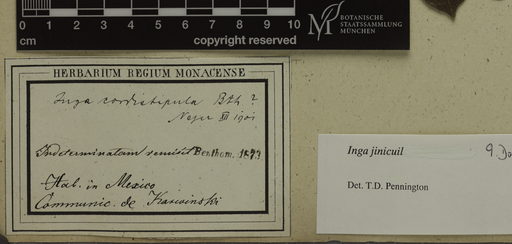 0 1 2 3 4 5 6 7 8 9 10
cm
copyright reserved
BOTANISCHE
STAATSSAMMLUNG
MÜNCHEN
HERBARIUM REGIUM MONACENSE
Inga cordistipula Bth ?
XII 1901
Indeterminatam remisit Bentham, 1873
Hab. in Mexico
Communic. de Karwinski
Inga jinicuil
Det. T.D. Pennington